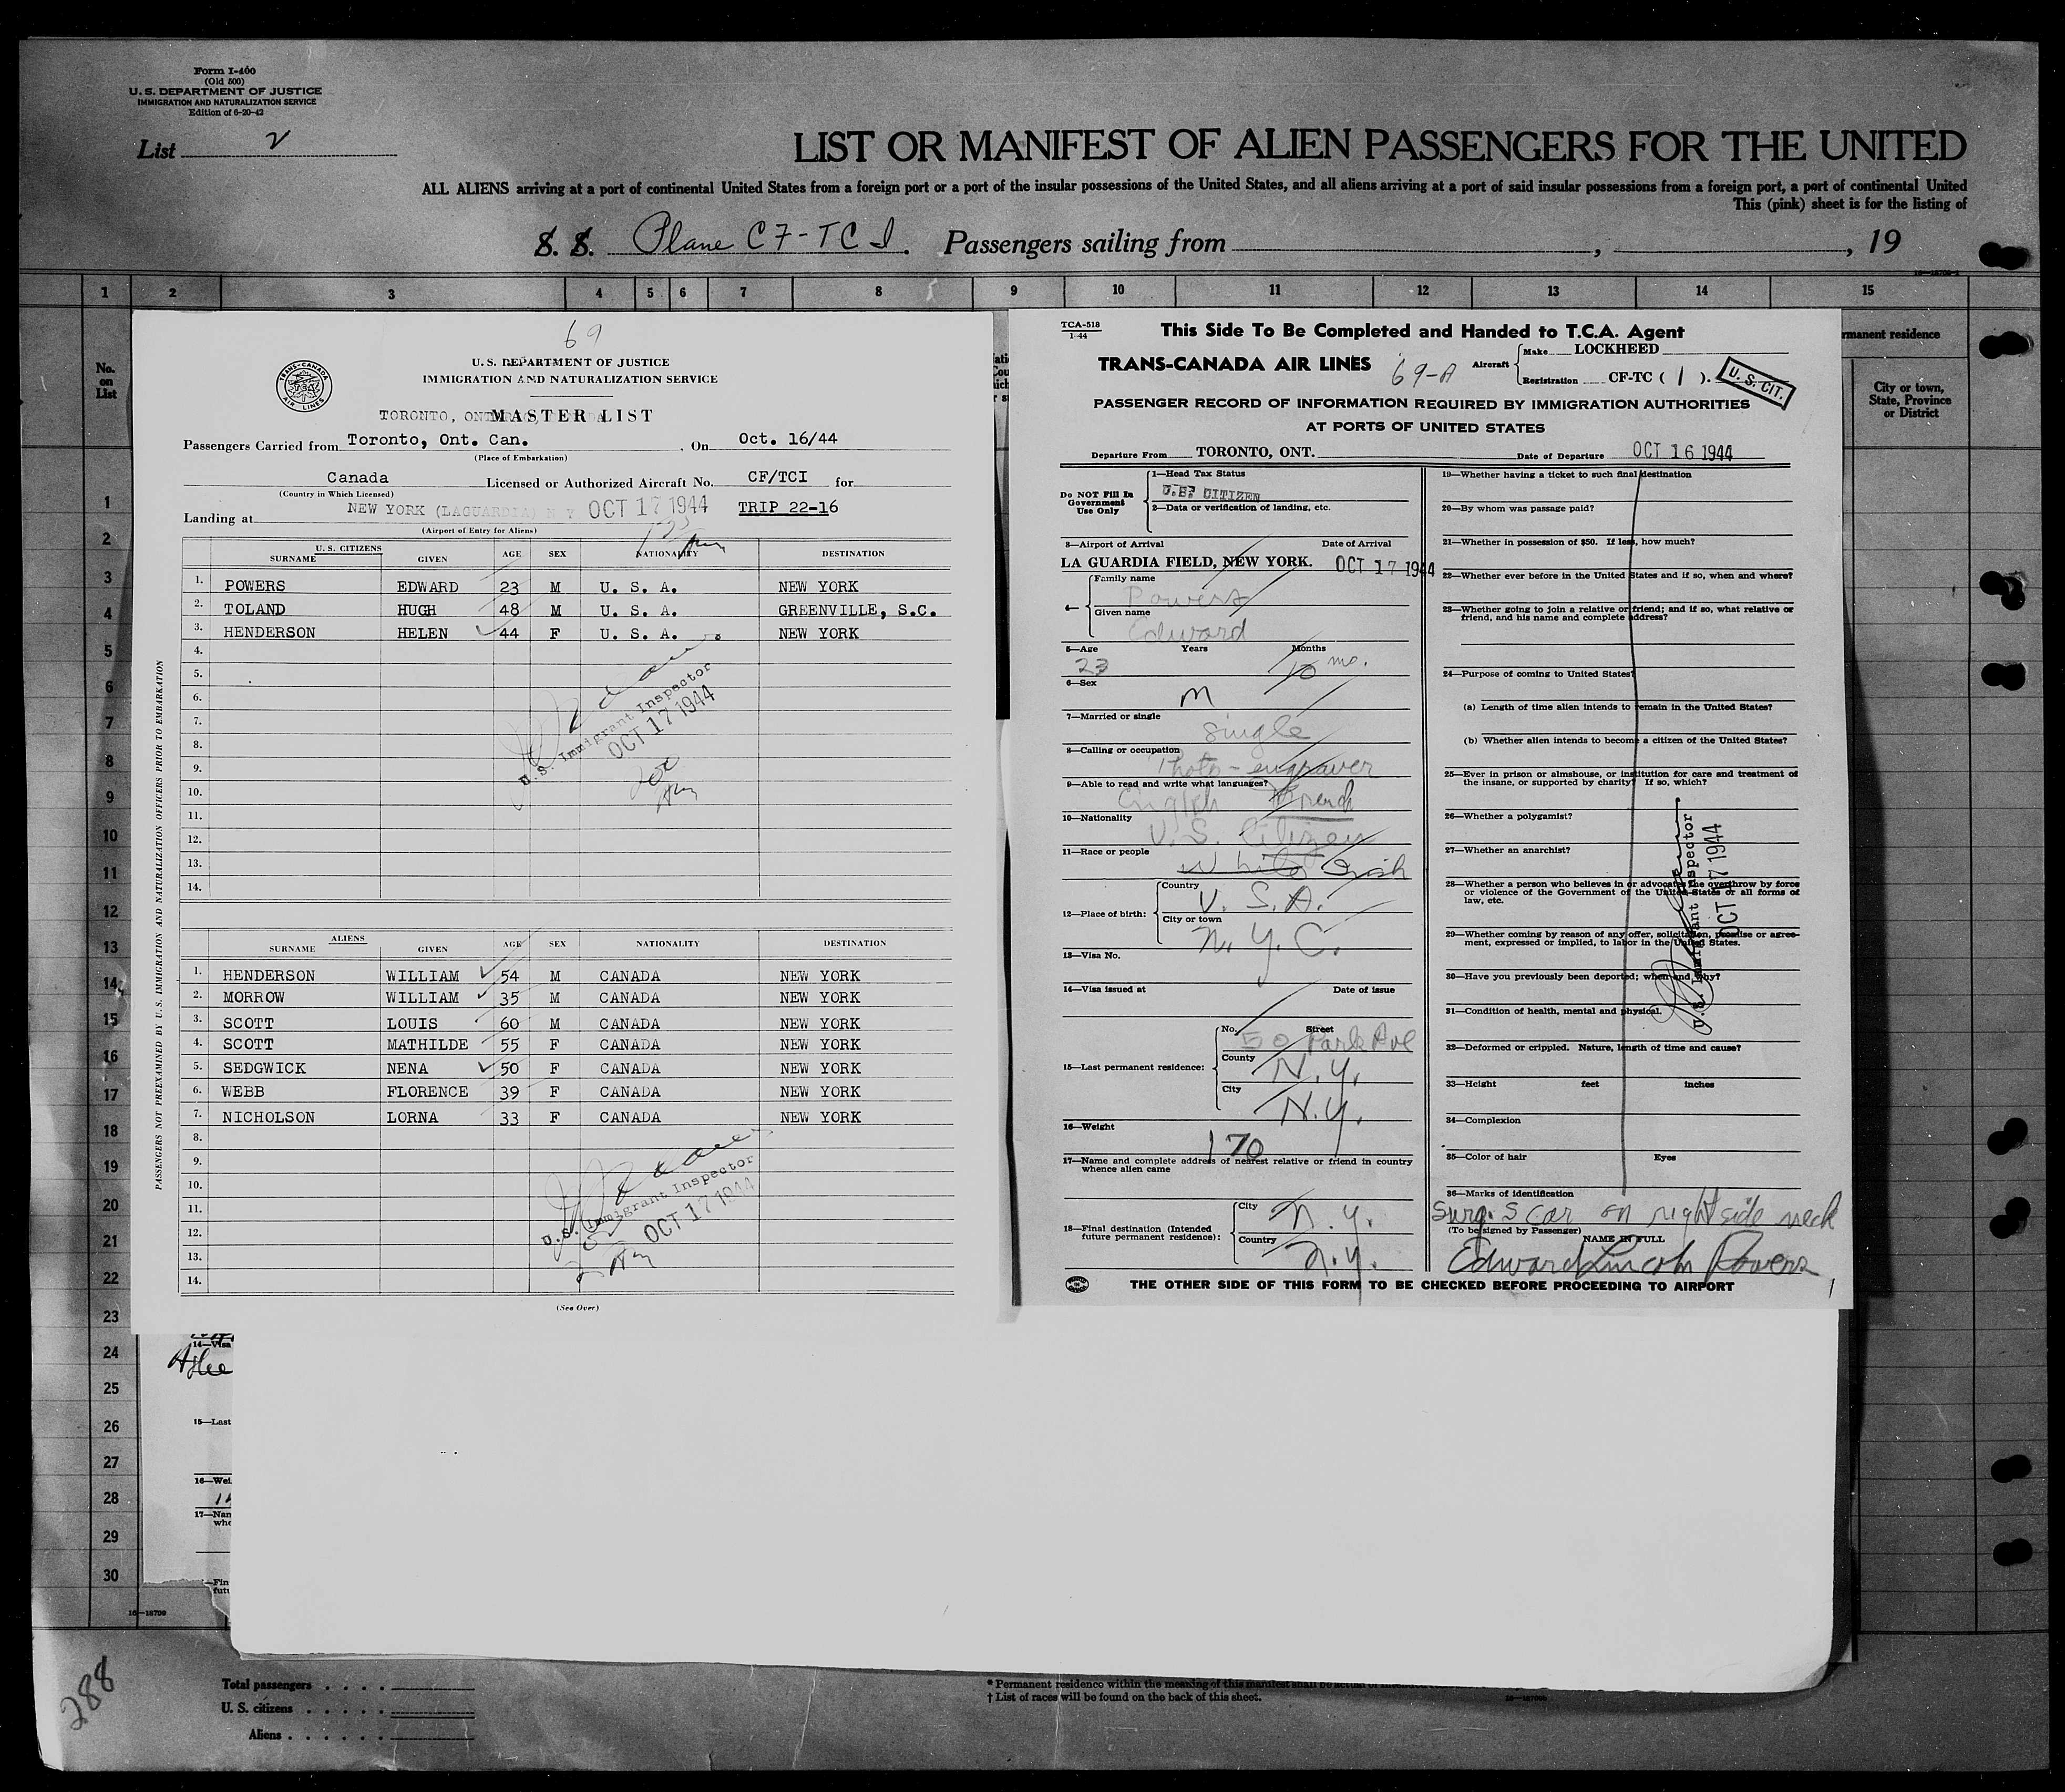 Form I-400
(Old 500)
U. S. DEPARTMENT OF JUSTICE
IMMIGRATION AND NATURALIZATION SERVICE
Edition of 6-20-42
List 2
LIST OR MANIFEST OF ALIEN PASSENGERS FOR THE UNITED
ALL ALIENS arriving at a port of continental United States from a foreign port or a port of the insular possessions of the United States, and all aliens arriving at a port of said insular possessions from a foreign port, a port of continental United
This (pink) sheet is for the listing of
S. S. Plane CF-TCI. Passengers sailing from , , 19
1 2 3 4 5 6 7 8 9 10 11 12 13 14 15
No. on List
rmanent residence
City or town, State, Province or District
69
TRANS-CANADA AIR LINES
U. S. DEPARTMENT OF JUSTICE
IMMIGRATION AND NATURALIZATION SERVICE
TORONTO, ONT
MASTER LIST
Passengers Carried from Toronto, Ont. Can. On Oct. 16/44
(Place of Embarkation)
Canada Licensed or Authorized Aircraft No. CF/TCI for
(Country in Which Licensed)
Landing at NEW YORK (LAGUARDIA) N Y OCT 17 1944 TRIP 22-16
(Airport of Entry for Aliens)
U. S. CITIZENS
SURNAME GIVEN AGE SEX NATIONALITY DESTINATION
1. POWERS EDWARD 23 M U. S. A. NEW YORK
2. TOLAND HUGH 48 M U. S. A. GREENVILLE, S.C.
3. HENDERSON HELEN 44 F U. S. A. NEW YORK
4.
5.
6.
7.
8.
9.
10.
11.
12.
13.
14.
U.S. Immigrant Inspector
OCT 17 1944
ALIENS
SURNAME GIVEN AGE SEX NATIONALITY DESTINATION
1. HENDERSON WILLIAM 54 M CANADA NEW YORK
2. MORROW WILLIAM 35 M CANADA NEW YORK
3. SCOTT LOUIS 60 M CANADA NEW YORK
4. SCOTT MATHILDE 55 F CANADA NEW YORK
5. SEDGWICK NENA 50 F CANADA NEW YORK
6. WEBB FLORENCE 39 F CANADA NEW YORK
7. NICHOLSON LORNA 33 F CANADA NEW YORK
8.
9.
10.
11.
12.
13.
14.
U.S. Immigrant Inspector
OCT 17 1944
(See Over)
PASSENGERS NOT PREEXAMINED BY U.S. IMMIGRATION AND NATURALIZATION OFFICERS PRIOR TO EMBARKATION
TCA-518
1-44
This Side To Be Completed and Handed to T.C.A. Agent
TRANS-CANADA AIR LINES 69-A Aircraft Make LOCKHEED
Registration CF-TC ( 1 ). U. S. CIT.
PASSENGER RECORD OF INFORMATION REQUIRED BY IMMIGRATION AUTHORITIES
AT PORTS OF UNITED STATES
Departure From TORONTO, ONT. Date of Departure OCT 16 1944
Do NOT Fill In Government Use Only
1—Head Tax Status
U.S. CITIZEN
2—Data or verification of landing, etc.
3—Airport of Arrival Date of Arrival
LA GUARDIA FIELD, NEW YORK. OCT 17 1944
4— Family name
Powers
Given name
Edward
5—Age Years Months
23 10 mo.
6—Sex
M
7—Married or single
Single
8—Calling or occupation
Photo-engraver
9—Able to read and write what languages?
English French
10—Nationality
U.S. Citizen
11—Race or people
White Irish
12—Place of birth: Country
U. S. A.
City or town
N. Y. C.
13—Visa No.
14—Visa issued at Date of issue
15—Last permanent residence: No. Street
50 Park Ave
County
N.Y.
City
N.Y.
16—Weight
170
17—Name and complete address of nearest relative or friend in country whence alien came
18—Final destination (Intended future permanent residence): City
N.Y.
Country
N.Y.
19—Whether having a ticket to such final destination
20—By whom was passage paid?
21—Whether in possession of $50. If less, how much?
22—Whether ever before in the United States and if so, when and where?
23—Whether going to join a relative or friend; and if so, what relative or friend, and his name and complete address?
24—Purpose of coming to United States?
(a) Length of time alien intends to remain in the United States?
(b) Whether alien intends to become a citizen of the United States?
25—Ever in prison or almshouse, or institution for care and treatment of the insane, or supported by charity? If so, which?
26—Whether a polygamist?
27—Whether an anarchist?
28—Whether a person who believes in or advocates the overthrow by force or violence of the Government of the United States or all forms of law, etc.
29—Whether coming by reason of any offer, solicitation, promise or agreement, expressed or implied, to labor in the United States.
30—Have you previously been deported; when and why?
31—Condition of health, mental and physical.
32—Deformed or crippled. Nature, length of time and cause?
33—Height feet inches
34—Complexion
35—Color of hair Eyes
36—Marks of identification
Surg. Scar on right side neck
(To be signed by Passenger) NAME IN FULL
Edward Lincoln Powers
U.S. Immigrant Inspector
OCT 17 1944
THE OTHER SIDE OF THIS FORM TO BE CHECKED BEFORE PROCEEDING TO AIRPORT
1
2
3
4
5
6
7
8
9
10
11
12
13
14
15
16
17
18
19
20
21
22
23
24
25
26
27
28
29
30
14—Visa
15—Last
16—Wei
17—Nan
whe
—Fin
futu
16—18709
288
Total passengers
U. S. citizens
Aliens
* Permanent residence within the meaning of this manifest shall be actual
† List of races will be found on the back of this sheet.